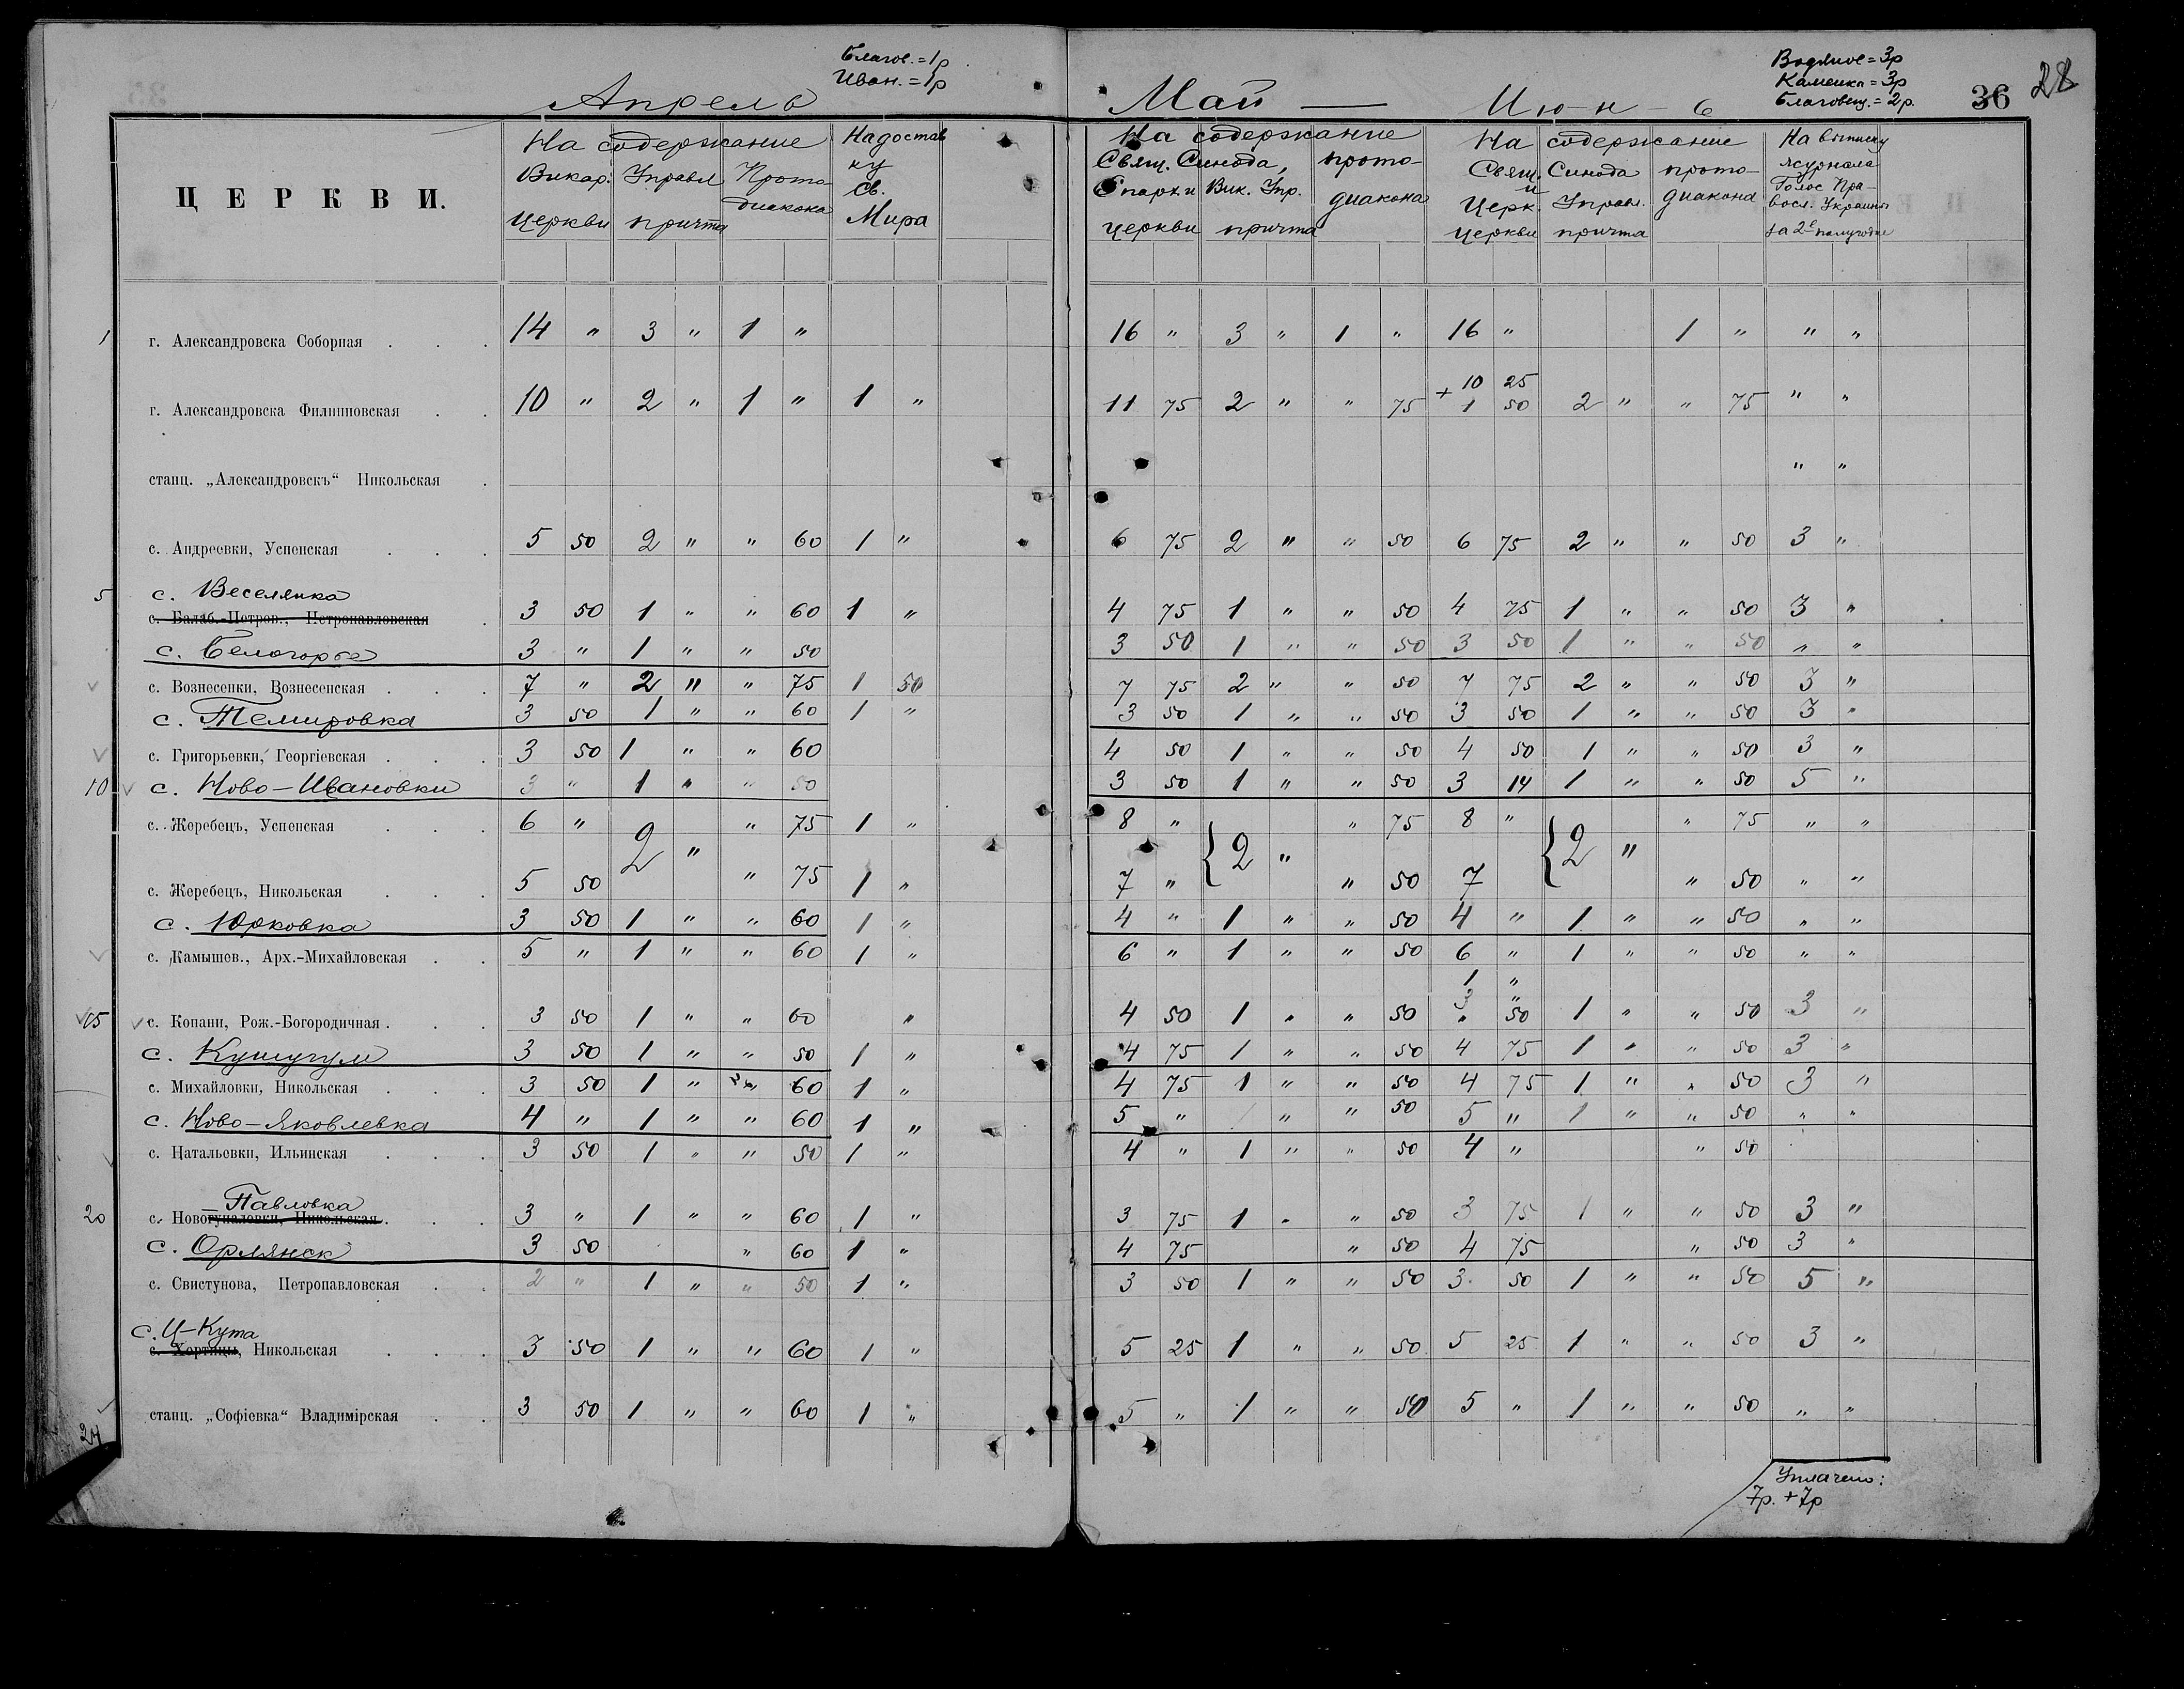 Благов. = 1р
Иван. = 1р
Апрель
Водяное = 3р
Каменка = 3р
Благовещ. = 2р.
Май — Июн-ь
36 28
ЦЕРКВИ.
На содержание
Викар. Управл Прото-
диакона
церкви причта
На достав
ку
Св.
Мира
На содержание
Свящ. Синода, прото-
Епархи Вик. Упр. диакона
церкви причта
На содержание
Свящ. Синода прото-
и
Церк. Управл. диакона
церкви причта
На выписку
журнала
Голос Пра-
восл. Украины
за 2е полугодие
1 г. Александровска Соборная . . . 14 " 3 " 1 " 16 " 3 " 1 " 16 " 1 " " "
10 25
г. Александровска Филипповская . . 10 " 2 " 1 " 1 " 11 75 2 " " 75 + 1 50 2 " " 75 " "
станц. „Александровскъ“ Никольская . " "
с. Андреевки, Успенская . . . 5 50 2 " " 60 1 " 6 75 2 " " 50 6 75 2 " " 50 3 "
5 с. Веселянка
с. Балаб.-Петров., Петропавловская . 3 50 1 " " 60 1 " 4 75 1 " " 50 4 75 1 " " 50 3 "
с. Белогорье 3 " 1 " " 50 3 50 1 " " 50 3 50 1 " " 50 " "
с. Вознесенки, Вознесенская . . . 7 " 2 " " 75 1 50 7 75 2 " " 50 7 75 2 " " 50 3 "
с. Темировка 3 50 1 " " 60 1 " 3 50 1 " " 50 3 50 1 " " 50 3 "
с. Григорьевки, Георгіевская . . . 3 50 1 " " 60 4 50 1 " " 50 4 50 1 " " 50 3 "
10 с. Ново-Ивановки 3 " 1 " " 50 3 50 1 " " 50 3 14 1 " " 50 5 "
с. Жеребецъ, Успенская . . . 6 " " 75 1 " 8 " " 75 8 " " 75 " "
2 " { 2 " { 2 "
с. Жеребецъ, Никольская . . . 5 50 " 75 1 " 7 " " 50 7 " 50 " "
с. Юрковка 3 50 1 " " 60 1 " 4 " 1 " " 50 4 " 1 " " 50 " "
с. Камышев., Арх.-Михайловская . . 5 " 1 " " 60 1 " 6 " 1 " " 50 6 " 1 " " 50 " "
1 "
3 "
15 с. Копани, Рож.-Богородичная . . . 3 50 1 " " 60 " 4 50 1 " " 50 " 50 1 " " 50 3 "
с. Кушугум 3 50 1 " " 50 1 " 4 75 1 " " 50 4 75 1 " " 50 3 "
с. Михайловки, Никольская . . . 3 50 1 " " 60 1 " 4 75 1 " " 50 4 75 1 " " 50 3 "
с. Ново-Яковлевка 4 " 1 " " 60 1 " 5 " 1 " " 50 5 " 1 " " 50 " "
с. Натальевки, Ильинская . . . 3 50 1 " " 50 1 " 4 " 1 " " 50 4 " " 50
Павловка
20 с. Новогупаловки, Никольская . . . 3 " 1 " " 60 1 " 3 75 1 " " 50 3 75 1 " " 50 3 "
с. Орлянск 3 50 " 60 1 " 4 75 " 50 4 75 " 50 3 "
с. Свистунова, Петропавловская . . 2 " 1 " " 50 1 " 3 50 1 " " 50 3 50 1 " " 50 5 "
с. Ц-Кута
с. Хортицы, Никольская . . . 3 50 1 " " 60 1 " 5 25 1 " " 50 5 25 1 " " 50 3 "
станц. „Софіевка“ Владимірская . . 3 50 1 " " 60 1 " 5 " 1 " " 50 5 " 1 " " 50 " "
24
Уплачено:
7р. + 7р